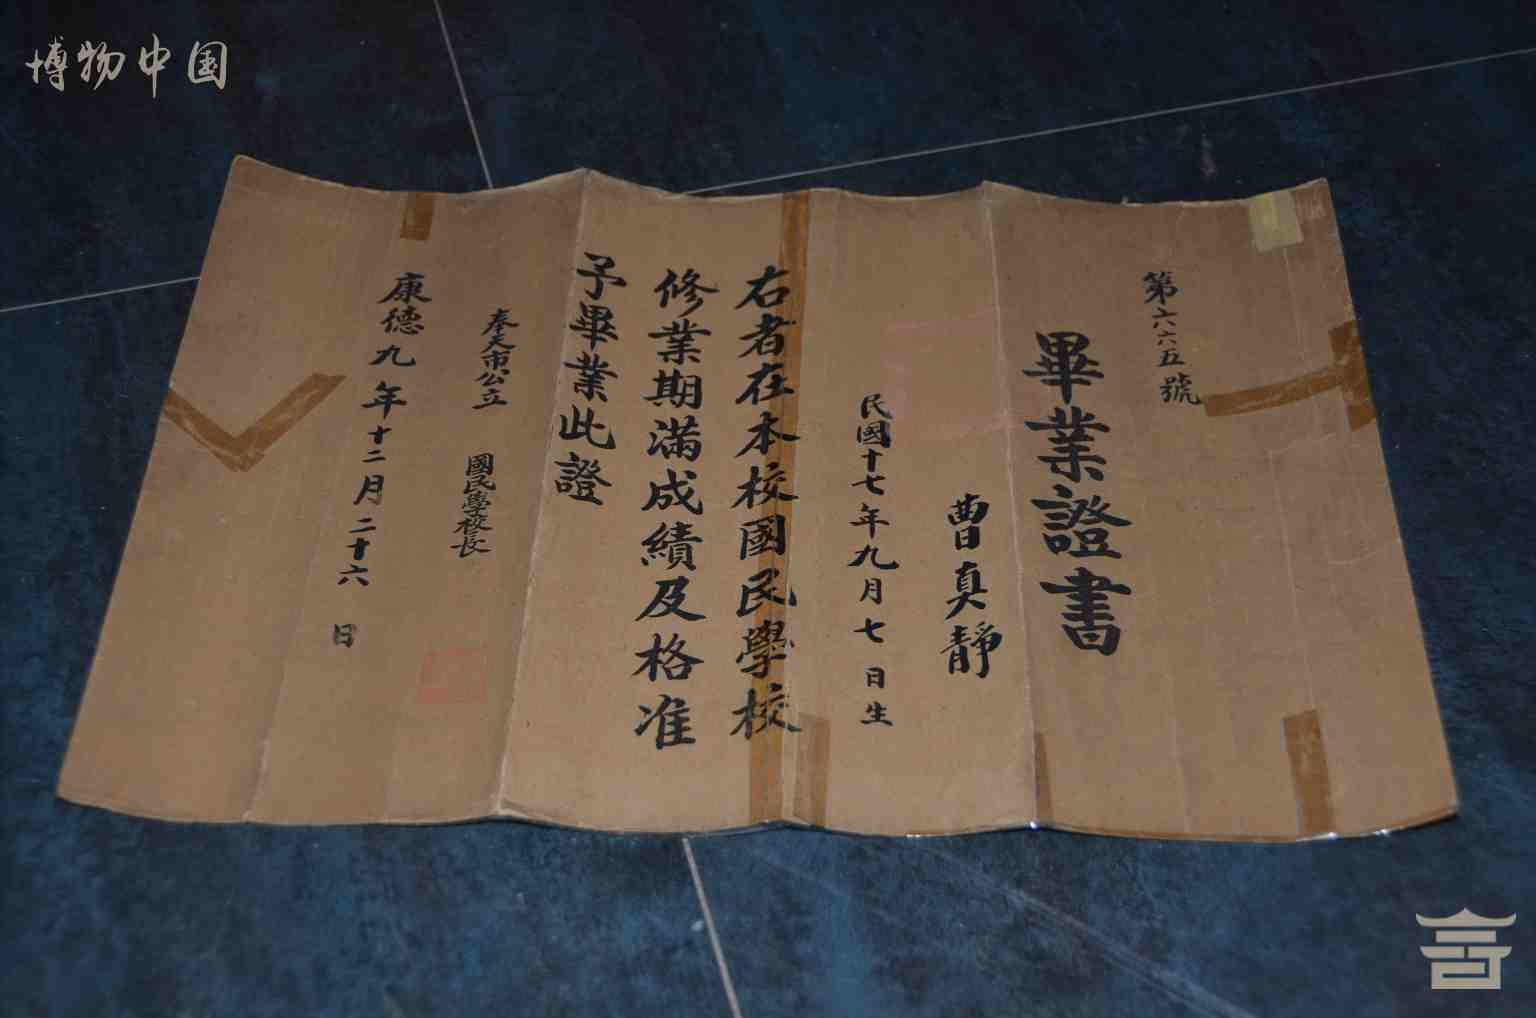 博物中国
第六六五號
畢業證書
曹真靜
民國十七年九月七日生
右者在本校國民學校
修業期滿成績及格准
予畢業此證
奉天市公立 國民學校長
康德九年十二月二十六日